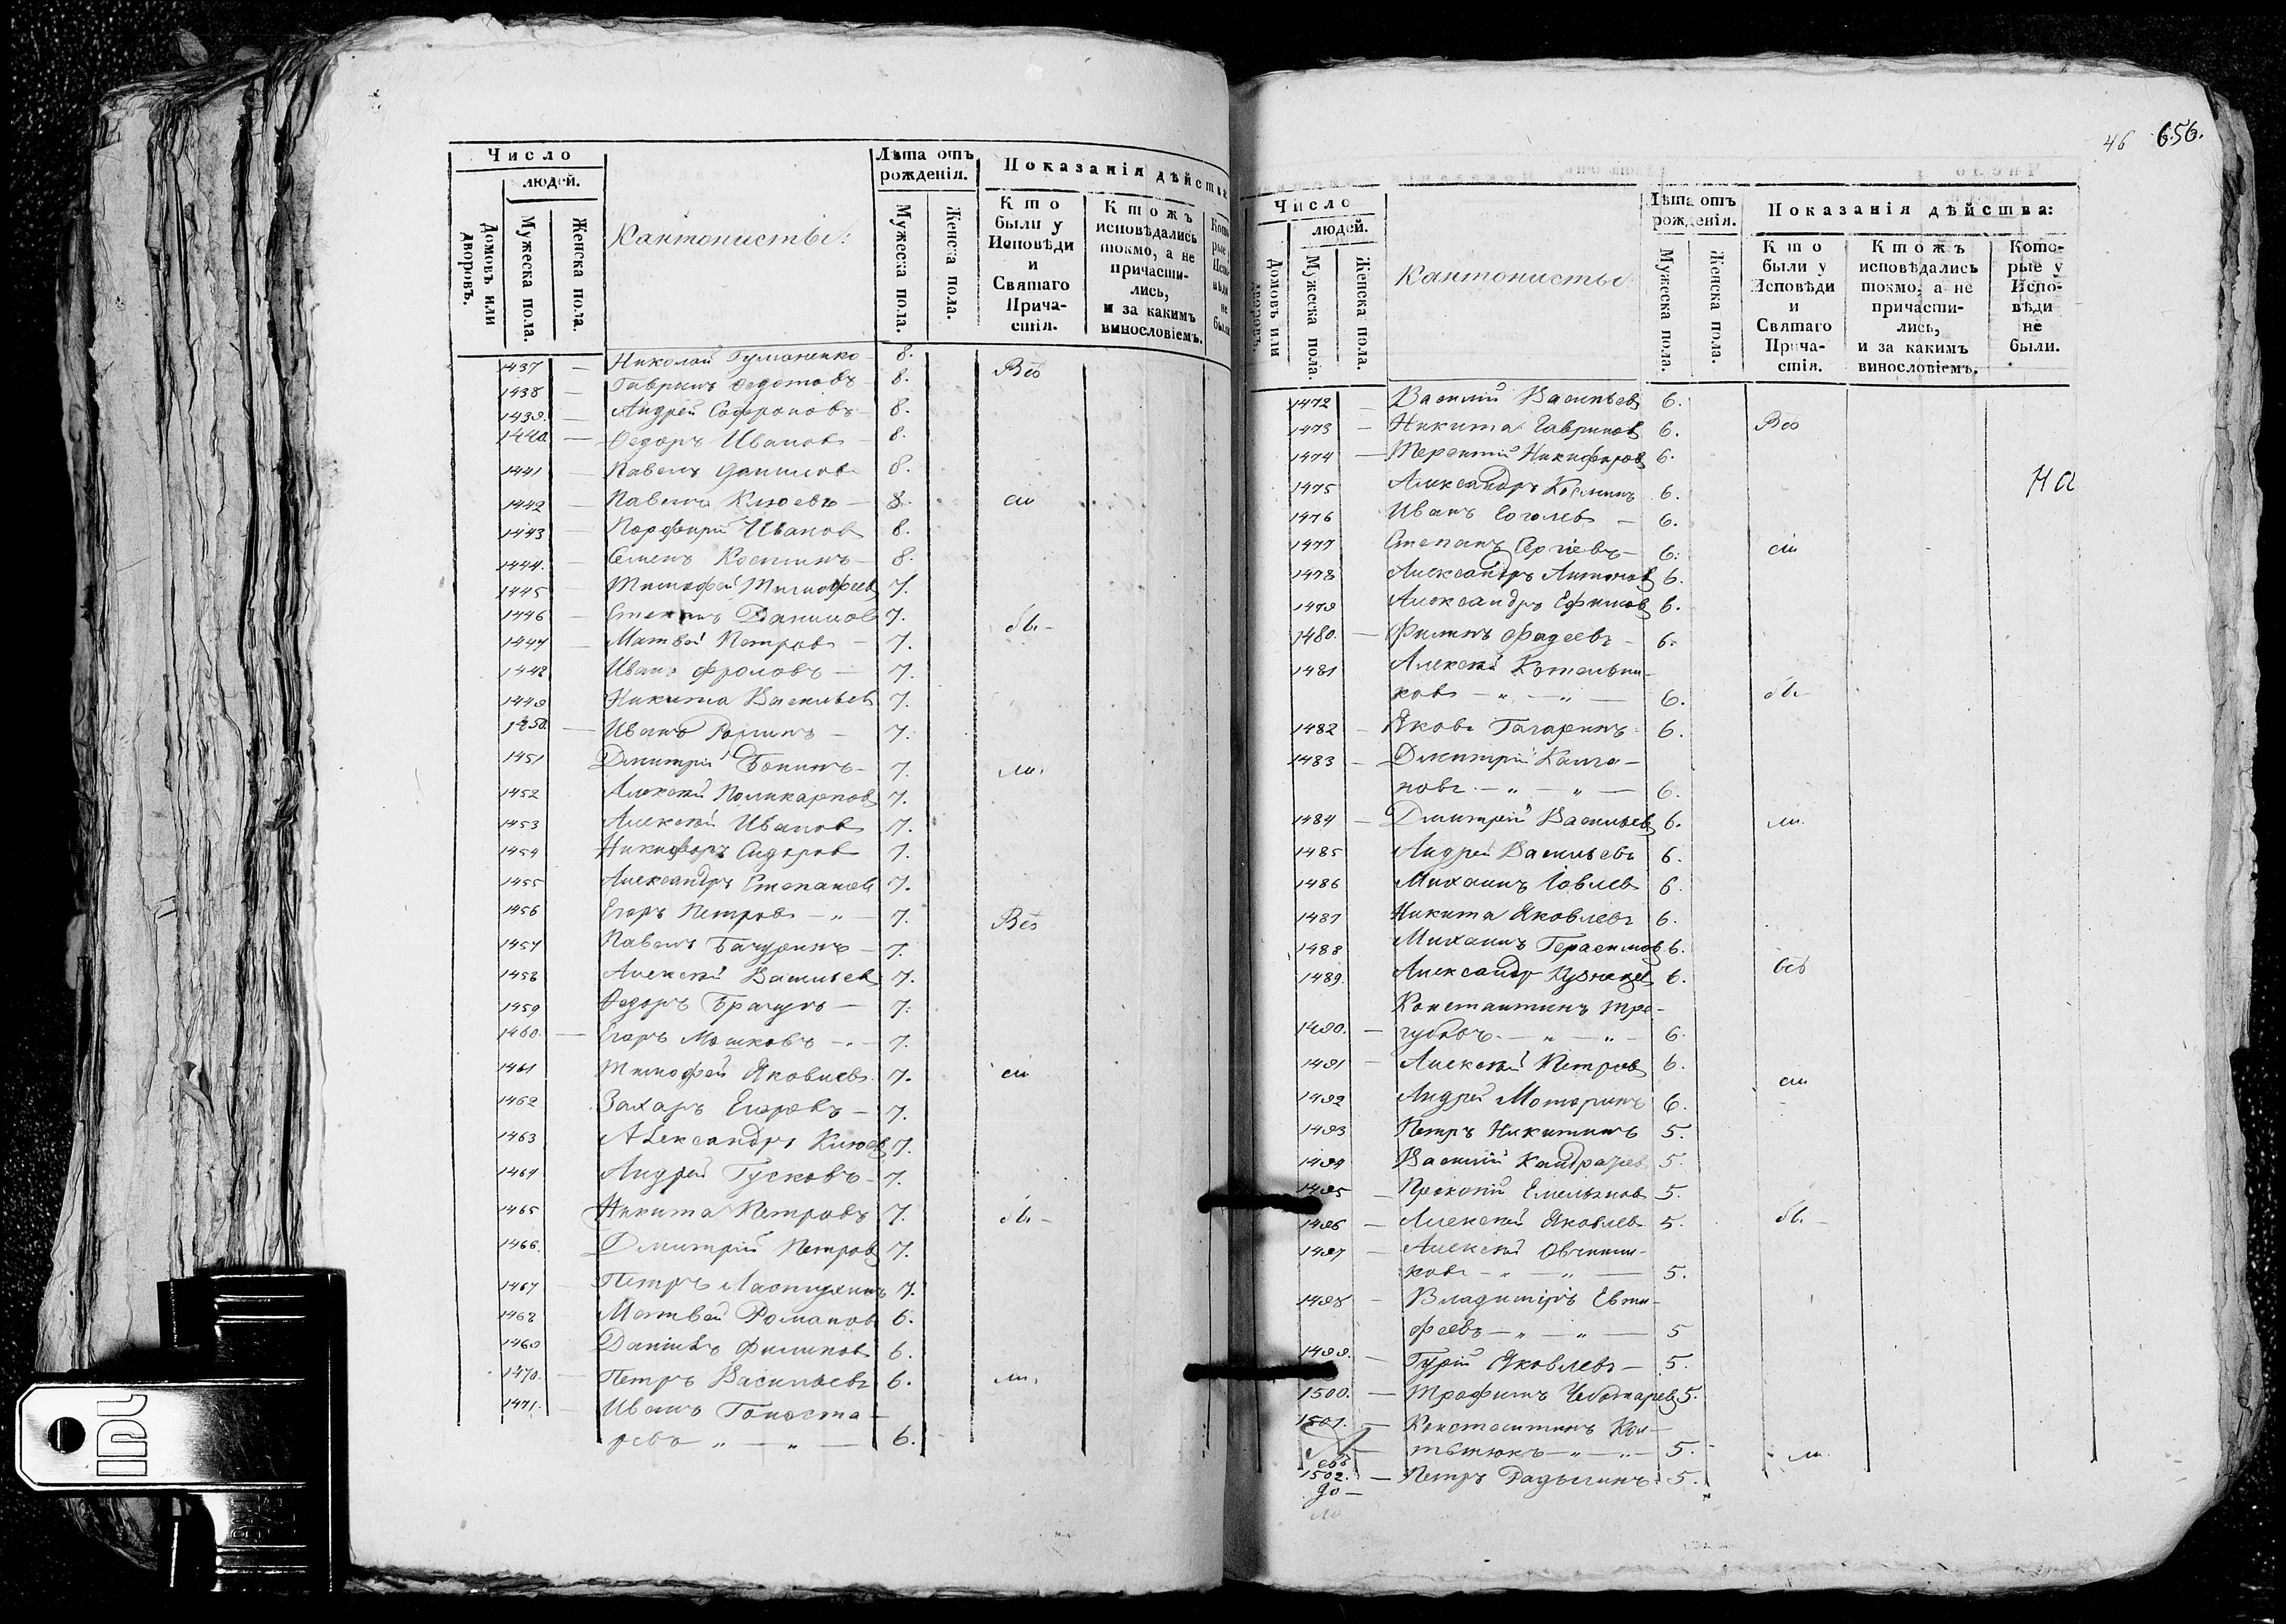 Число
людей.
Домовъ или дворовъ.
Мужеска пола.
Женска пола.
Кантонисты:
Лѣта отъ рожденія.
Мужеска пола.
Женска пола.
Показанія дѣйства
Кто были у Исповѣди и Святаго Причастія.
Ктожъ исповѣдались токмо, а не причастились, и за какимъ винословіемъ.
1437 — Николай Гуманенко 8. Всѣ
1438 — Гаврилъ Федотовъ 8.
1439. — Андрей Софроновъ 8.
1440. — Федоръ Ивановъ 8.
1441 — Павелъ Даниловъ 8.
1442 — Павелъ Клюевъ — 8. сіи
1443 — Порфирій Ивановъ 8.
1444. — Семенъ Костинъ — 8.
1445 — Тимофей Тимофеевъ 7.
1446 — Степанъ Даниловъ 7. бы-
1447 — Матвей Петровъ 7.
1448 Иванъ Фроловъ — 7.
1449 Никита Васильевъ 7.
1450. — Иванъ — 7.
1451 Дмитрій Бонинъ — 7. ли.
1452 Алексѣй Поликарповъ 7.
1453 Алексѣй Ивановъ 7.
1454 Никифоръ Сидоровъ 7.
1455 Александръ Степановъ 7.
1456 Егоръ Петровъ — „ — 7. Всѣ
1457 Павелъ Бачуринъ — 7.
1458 Алексѣй Васильевъ 7.
1459 Федоръ — 7.
1460. — Егоръ Мошковъ — 7.
1461 Тимофей Яковлевъ 7. сіи
1462 Захаръ Егоровъ — 7.
1463 Александръ Клюевъ 7.
1464 Андрей Гусковъ — 7.
1465 Никита Петровъ 7. бы-
1466. Дмитрій Петровъ 7.
1467 Петръ 7.
1468 Матвей Романовъ 6.
1469 Даніилъ Филиповъ 6.
1470. — Петръ Васильевъ 6. ли.
1471. — Иванъ Гоноста-
ревъ „ — „ — 6.
46 656.
Число
людей.
Домовъ или дворовъ.
Мужеска пола.
Женска пола.
Кантонисты:
Лѣта отъ рожденія.
Мужеска пола.
Женска пола.
Показанія дѣйства:
Кто были у Исповѣди и Святаго Причастія.
Ктожъ исповѣдались токмо, а не причастились, и за какимъ винословіемъ.
Которые у Исповѣди не были.
1472 — Василій Васильевъ 6.
1473 — Никита Гавриловъ 6. Всѣ
1474 — Терентій Никифоровъ 6.
1475 Александръ Косминъ 6. на
1476 Иванъ Гоголевъ — 6.
1477 Степанъ Сергіевъ — 6. сіи
1478 Александръ Антоновъ 6.
1479 Александръ Ефимовъ 6.
1480. — Филипъ Фадеевъ — 6.
1481 Алексѣй Котельни-
ковъ — „ — „ — 6. бы-
1482 — Яковъ Гагаринъ 6.
1483 — Дмитрій Калга-
новъ. — „ — „ — 6.
1484 — Дмитрей Васильевъ 6. ли.
1485 Андрей Васильевъ 6.
1486 Михаилъ Іовлевъ 6.
1487 Никита Яковлевъ 6.
1488 Михаилъ Герасимовъ 6.
1489. Александръ Кузнецовъ 6. всѣ
Константинъ Тре-
1490. — губовъ. — „ — „ — 6.
1491 — Алексѣй Петровъ 6.
1492 Андрей Моторинъ 6. сіи
1493 Петръ Никитинъ 5.
1494 Василій 5.
1495 — Прокопій Емельяновъ 5.
1496 — Алексѣй Яковлевъ 5. бы. —
1497 — Алексѣй Овчинни-
ковъ — „ — „ — 5.
1498 — Владиміръ Евти-
феевъ — „ — „ — 5
1499. — Гурій Яковлевъ — 5.
1500. — Трофимъ Чеботаревъ 5.
1501. — Константинъ
— „ — „ — 5. ли.
1502. — Петръ Радыгинъ 5.